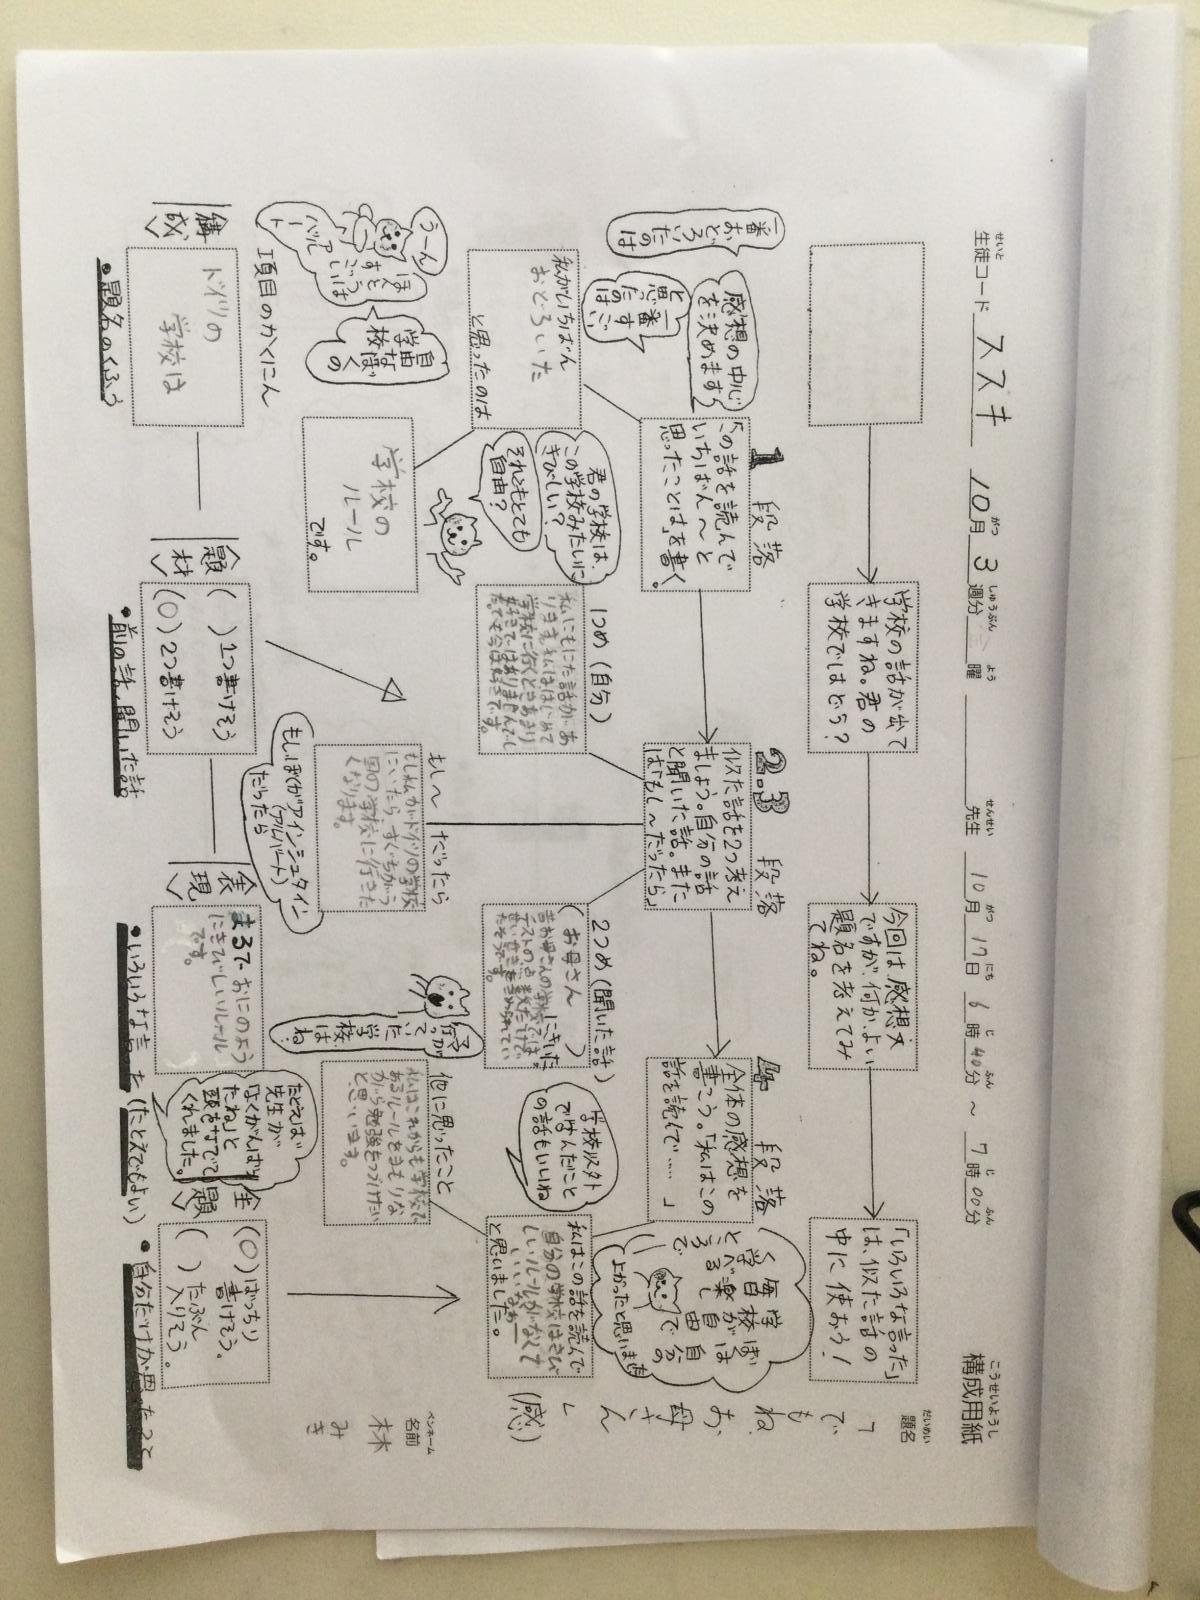 構成用紙
こうせいようし
生徒コード ススキ 10月 3週分 曜 先生 10月 17日 6時40分 ～ 7時00分
せいと がつ しゅうぶん よう せんせい がつ にち じ ふん じ ふん
題名
だいめい
「でもね、お母さん」(感)
ペンネーム
名前
林 みき
学校の話が出て
きますね。君の
学校ではどう？
今回は感想文
ですが、何かよい
題名を考えてみ
てね。
「いろいろな言った」
は、似た話の
中に使おう！
1段落
「この話を読んで
いちばん～と
思ったことは」を書く。
2.3段落
似た話を2つ考え
ましょう。自分の話
と聞いた話。また
は「もし～だったら」
4段落
全体の感想を
書こう。「私はこの
話を読んで……」
一番
おどろいたのは
感想の中心
を決めます
一番すご
いと
思ったのは
私がいちばん
おどろいた
と思ったのは
学校の
ルール
です。
君の学校は、
この学校みたいに
きびしい？
それともとても
自由？
うーん
ほんとうは
すごい
自由な
ぼくの
学校
1つめ(自分)
私にもにた話があ
ります。私ははじめて
学校に行くときあまり
好きではありませんでし
た。でも今は好きです。
2つめ(聞いた話)
(お母さん にきいた)
昔お母さんの学校では、
テストの点数だけで
せいせきをきめられてい
たそうです。
もし～だったら
もし私がドイツの学校
にいたらすぐちがう
国の学校に行きた
くなります。
もし、ぼくがアインシュタイン
(アルバート)
だったら
学校以外
で学んだこと
の話もいいね
他に思ったこと
私はこれからも学校で
あるルールをまもりな
がら勉強をつづけたい
と思います。
私はこの話を読んで
自分の学校はきび
しいルールがなくて
いいなあー
と思いました。
ぼくは自分の
学校が自由で
毎日楽しく
学べるところで
よかったと思います
項目のかくにん
構成
ドイツの
学校は
・題名のくふう
題材
( )1つ書けそう
(○)2つ書けそう
・前の話、聞いた話
表現
まるでおにのよう
にきびしいルール
です。
・いろいろな言った(たとえでもよい)
たとえば
先生が
「よくがんばっ
たね」と
頭をなでて
くれました。
主題
(○)ばっちり
書けそう。
( )たぶん
入りそう。
・自分だけが思ったこと